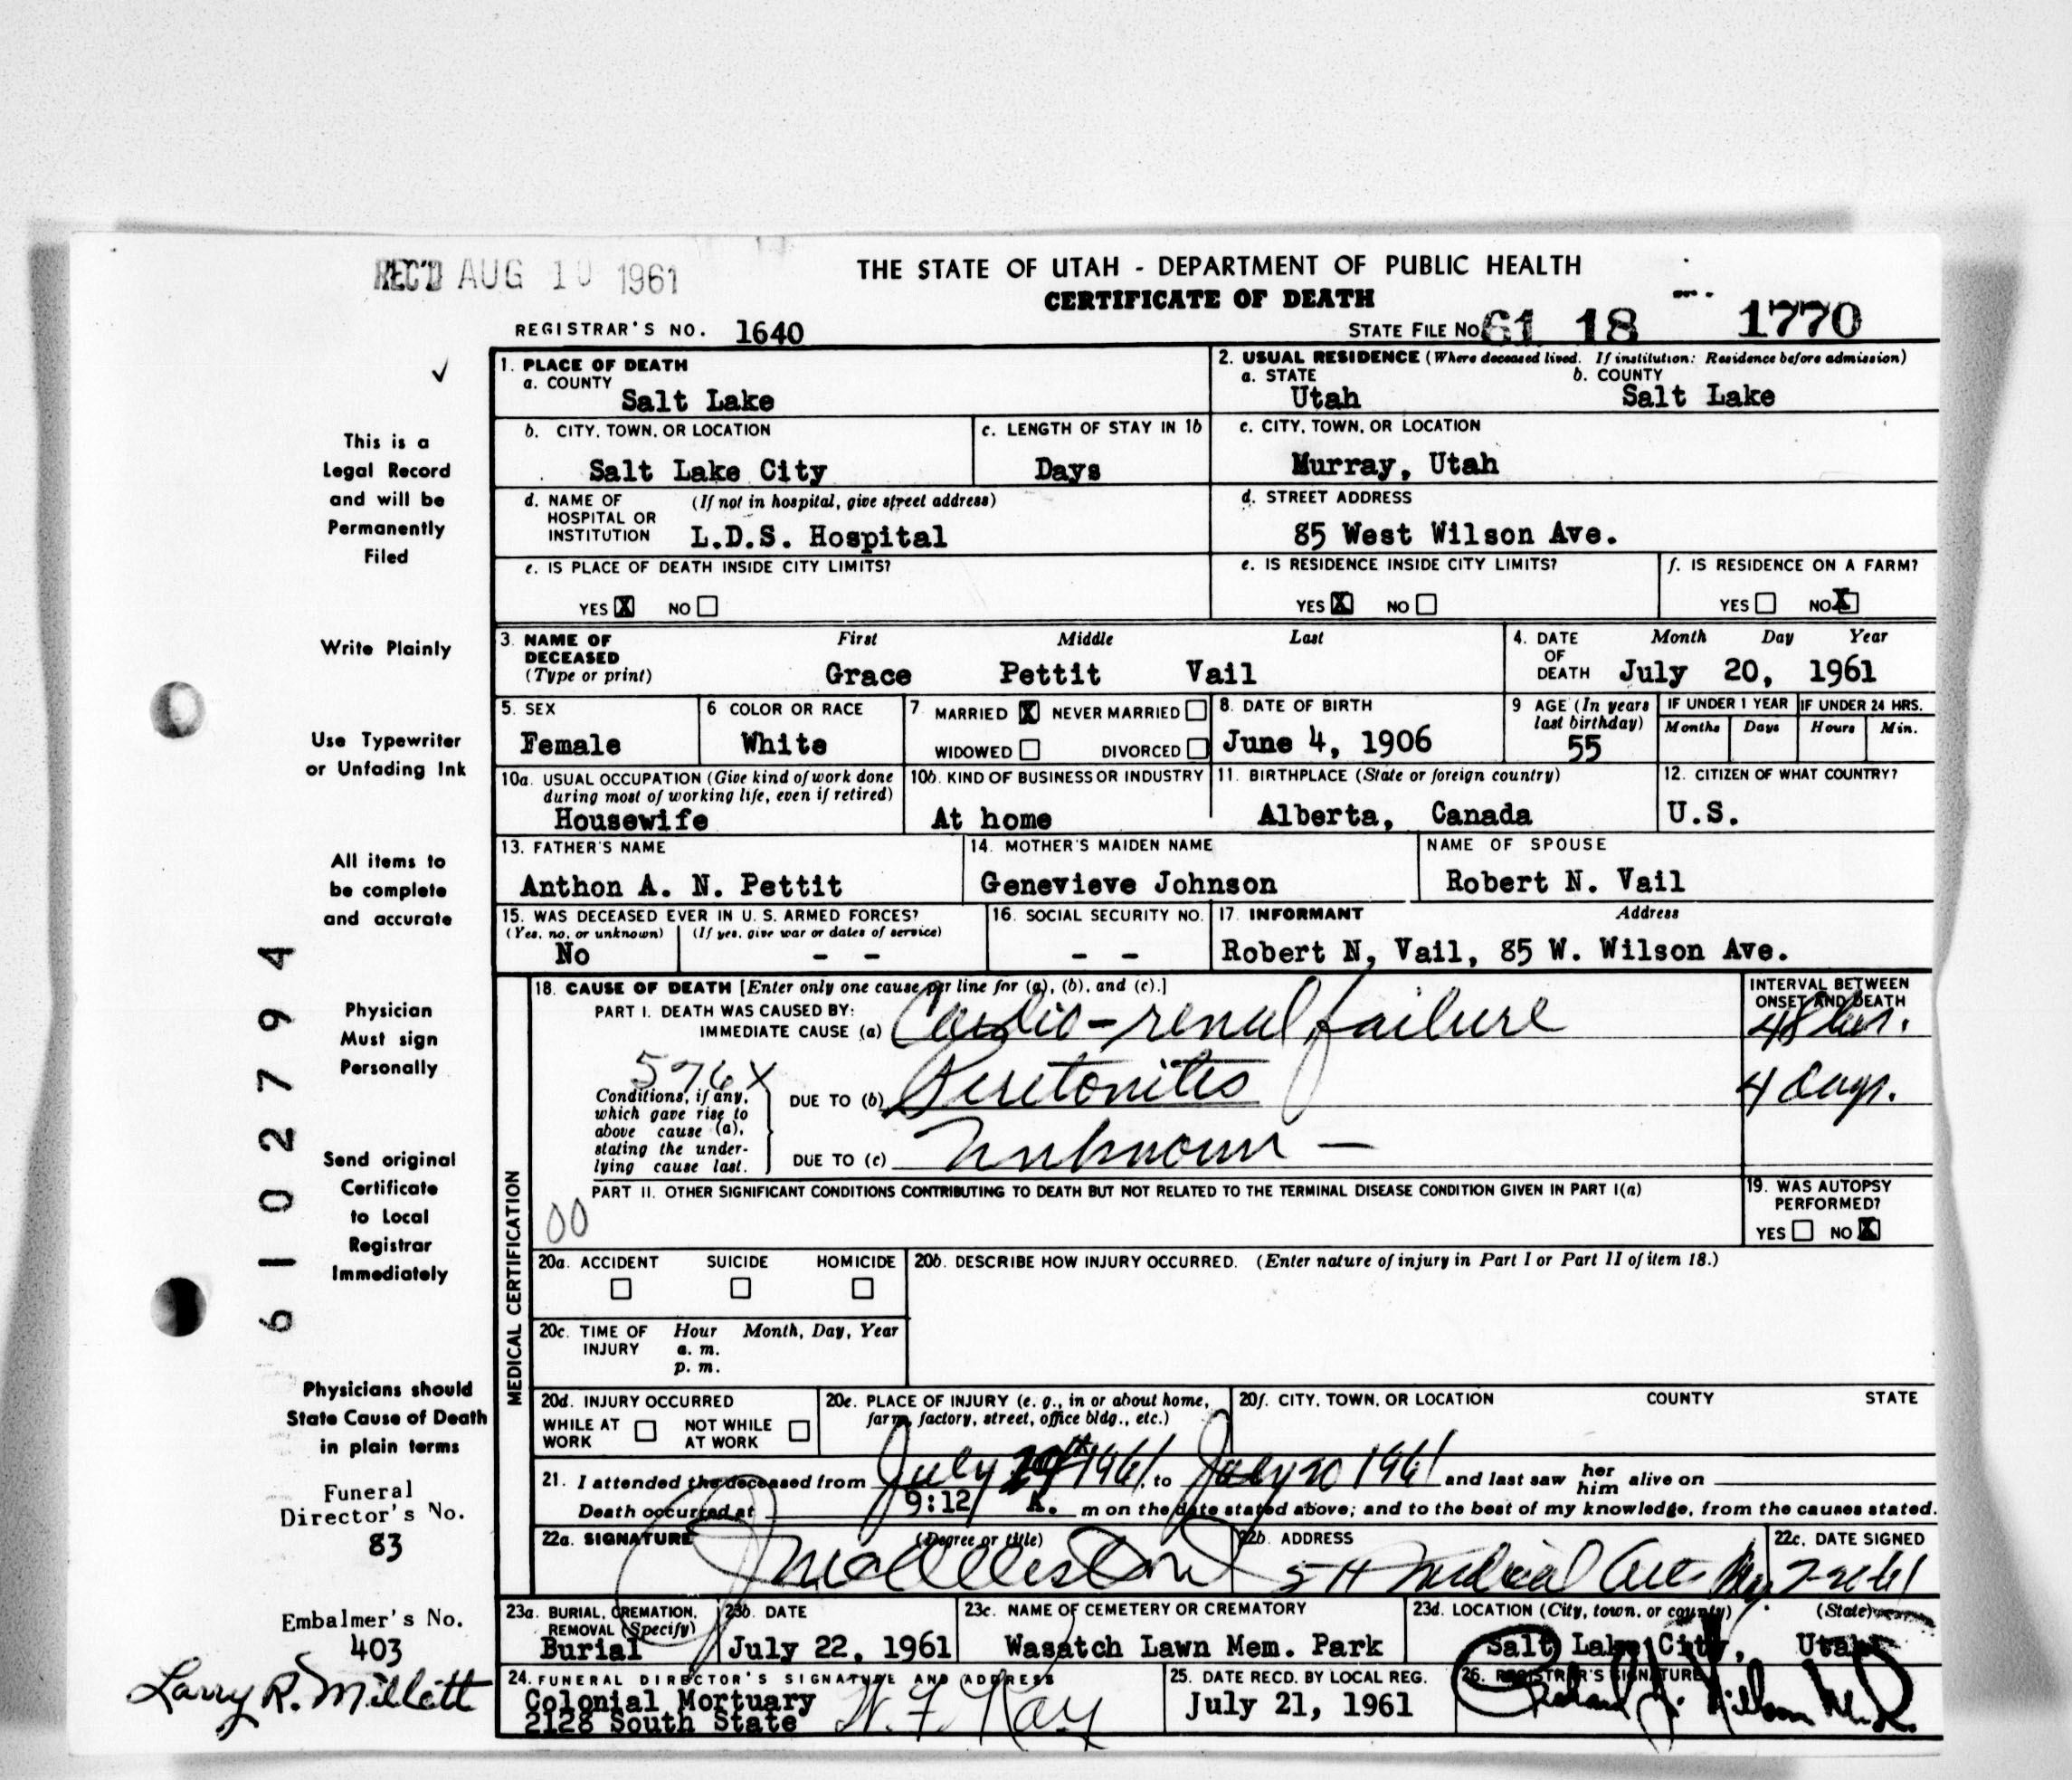 REC'D AUG 10 1961
THE STATE OF UTAH - DEPARTMENT OF PUBLIC HEALTH
CERTIFICATE OF DEATH
REGISTRAR'S NO. 1640
STATE FILE No. 61 18 1770
This is a
Legal Record
and will be
Permanently
Filed
Write Plainly
Use Typewriter
or Unfading Ink
All items to
be complete
and accurate
Physician
Must sign
Personally
Send original
Certificate
to Local
Registrar
Immediately
Physicians should
State Cause of Death
in plain terms
Funeral
Director's No.
83
Embalmer's No.
403
Larry R. Millett
6102794
1. PLACE OF DEATH
a. COUNTY
Salt Lake
2. USUAL RESIDENCE (Where deceased lived. If institution: Residence before admission)
a. STATE b. COUNTY
Utah Salt Lake
b. CITY, TOWN, OR LOCATION
Salt Lake City
c. LENGTH OF STAY IN 1b
Days
c. CITY, TOWN, OR LOCATION
Murray, Utah
d. NAME OF (If not in hospital, give street address)
HOSPITAL OR
INSTITUTION L.D.S. Hospital
d. STREET ADDRESS
85 West Wilson Ave.
e. IS PLACE OF DEATH INSIDE CITY LIMITS?
YES X NO
e. IS RESIDENCE INSIDE CITY LIMITS?
YES X NO
f. IS RESIDENCE ON A FARM?
YES NO X
3. NAME OF First Middle Last
DECEASED
(Type or print) Grace Pettit Vail
4. DATE Month Day Year
OF
DEATH July 20, 1961
5. SEX
Female
6 COLOR OR RACE
White
7 MARRIED X NEVER MARRIED
WIDOWED DIVORCED
8. DATE OF BIRTH
June 4, 1906
9 AGE (In years
last birthday)
55
IF UNDER 1 YEAR
Months Days
IF UNDER 24 HRS.
Hours Min.
10a. USUAL OCCUPATION (Give kind of work done
during most of working life, even if retired)
Housewife
10b. KIND OF BUSINESS OR INDUSTRY
At home
11. BIRTHPLACE (State or foreign country)
Alberta, Canada
12. CITIZEN OF WHAT COUNTRY?
U.S.
13. FATHER'S NAME
Anthon A. N. Pettit
14. MOTHER'S MAIDEN NAME
Genevieve Johnson
NAME OF SPOUSE
Robert N. Vail
15. WAS DECEASED EVER IN U. S. ARMED FORCES?
(Yes, no, or unknown) (If yes, give war or dates of service)
No - -
16. SOCIAL SECURITY NO.
- -
17. INFORMANT Address
Robert N, Vail, 85 W. Wilson Ave.
MEDICAL CERTIFICATION
18. CAUSE OF DEATH [Enter only one cause per line for (a), (b), and (c).]
PART I. DEATH WAS CAUSED BY:
IMMEDIATE CAUSE (a) Cardio-renal failure
INTERVAL BETWEEN
ONSET AND DEATH
48 hrs.
576X
Conditions, if any,
which gave rise to
above cause (a),
stating the under-
lying cause last.
DUE TO (b) Peritonitis
4 days.
DUE TO (c) Unknown —
PART II. OTHER SIGNIFICANT CONDITIONS CONTRIBUTING TO DEATH BUT NOT RELATED TO THE TERMINAL DISEASE CONDITION GIVEN IN PART I(a)
00
19. WAS AUTOPSY
PERFORMED?
YES NO X
20a. ACCIDENT SUICIDE HOMICIDE
20b. DESCRIBE HOW INJURY OCCURRED. (Enter nature of injury in Part I or Part II of item 18.)
20c. TIME OF Hour Month, Day, Year
INJURY a. m.
p. m.
20d. INJURY OCCURRED
WHILE AT NOT WHILE
WORK AT WORK
20e. PLACE OF INJURY (e. g., in or about home,
farm, factory, street, office bldg., etc.)
20f. CITY, TOWN, OR LOCATION COUNTY STATE
21. I attended the deceased from July 1961, to July 20 1961 and last saw her him alive on
Death occurred at 9:12 A. m on the date stated above; and to the best of my knowledge, from the causes stated.
22a. SIGNATURE (Degree or title)
22b. ADDRESS
Medical Arts
22c. DATE SIGNED
23a. BURIAL, CREMATION,
REMOVAL (Specify)
Burial
23b. DATE
July 22, 1961
23c. NAME OF CEMETERY OR CREMATORY
Wasatch Lawn Mem. Park
23d. LOCATION (City, town, or county) (State)
Salt Lake City, Utah
24. FUNERAL DIRECTOR'S SIGNATURE AND ADDRESS
Colonial Mortuary
2128 South State W. F. Kay
25. DATE RECD. BY LOCAL REG.
July 21, 1961
26. REGISTRAR'S SIGNATURE